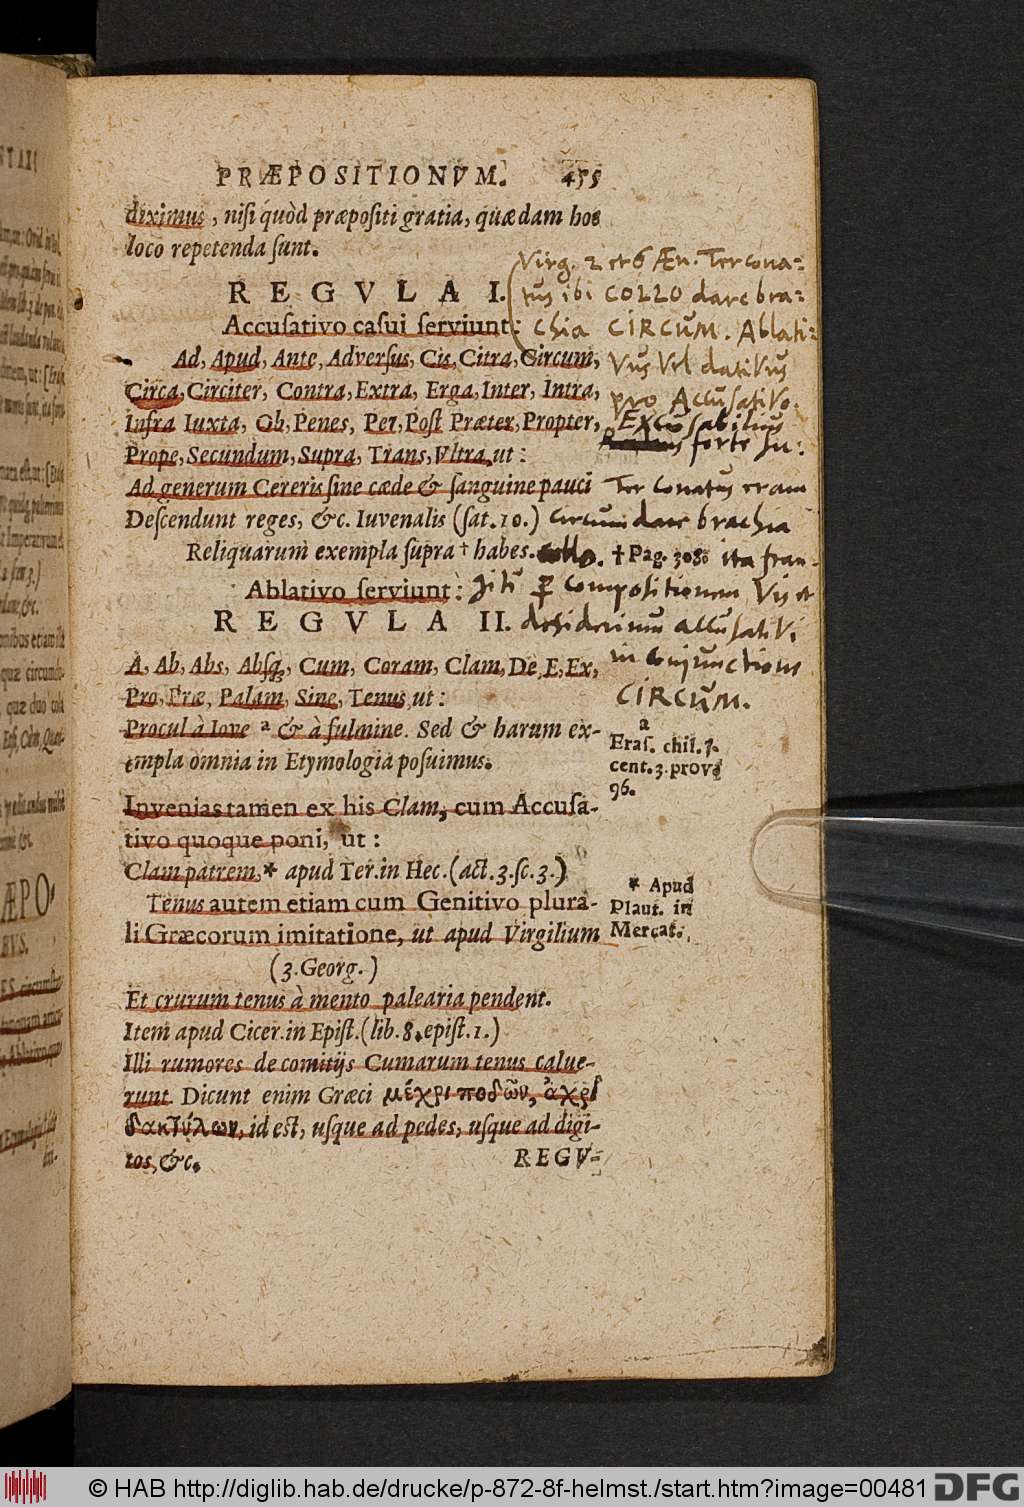 PRÆPOSITIONVM. 455
diximus, nisi quòd præpositi gratia, quædam hoc
loco repetenda sunt.
REGVLA I.
Accusativo casui serviunt:
Ad, Apud, Ante, Adversus, Cis, Citra, Circum,
Circa, Circiter, Contra, Extra, Erga, Inter, Intra,
Infra Iuxta, Ob, Penes, Per, Post Præter, Propter,
Prope, Secundum, Supra, Trans, Vltra, ut:
Ad generum Cereris sine cæde & sanguine pauci
Descendunt reges, &c. Iuvenalis (sat. 10.)
Reliquarum exempla supra † habes.
Ablativo serviunt:
REGVLA II.
A, Ab, Abs, Absq;, Cum, Coram, Clam, De, E, Ex,
Pro, Præ, Palam, Sine, Tenus, ut:
Procul à Iove a & à fulmine. Sed & harum ex-
empla omnia in Etymologia posuimus.
Invenias tamen ex his Clam, cum Accusa-
tivo quoque poni, ut:
Clam patrem,* apud Ter. in Hec. (act. 3. sc. 3.)
Tenus autem etiam cum Genitivo plura-
li Græcorum imitatione, ut apud Virgilium
(3. Georg.)
Et crurum tenus à mento palearia pendent.
Item apud Cicer. in Epist. (lib. 8. epist. 1.)
Illi rumores de comitijs Cumarum tenus calue-
runt. Dicunt enim Græci μέχρι ποδῶν, ἄχρι
δακτύλων, id est, usque ad pedes, usque ad digi-
tos, &c.
REGV-
Virg. 2 et 6 Æn. Ter cona-
tus ibi COLLO dare bra-
chia CIRCUM. Ablati-
vus vel dativus
pro Accusativo.
Excusabilius
forte su:
Ter conatus eram
circumdare brachia
collo. † Pag. 308. ita fran-
compositionem vis et
desiderium accusativi
in conjunctione
CIRCUM.
a
Eras. chil. 1.
cent. 3. prove
96.
* Apud
Plaut. in
Mercat.
© HAB http://diglib.hab.de/drucke/p-872-8f-helmst./start.htm?image=00481 DFG